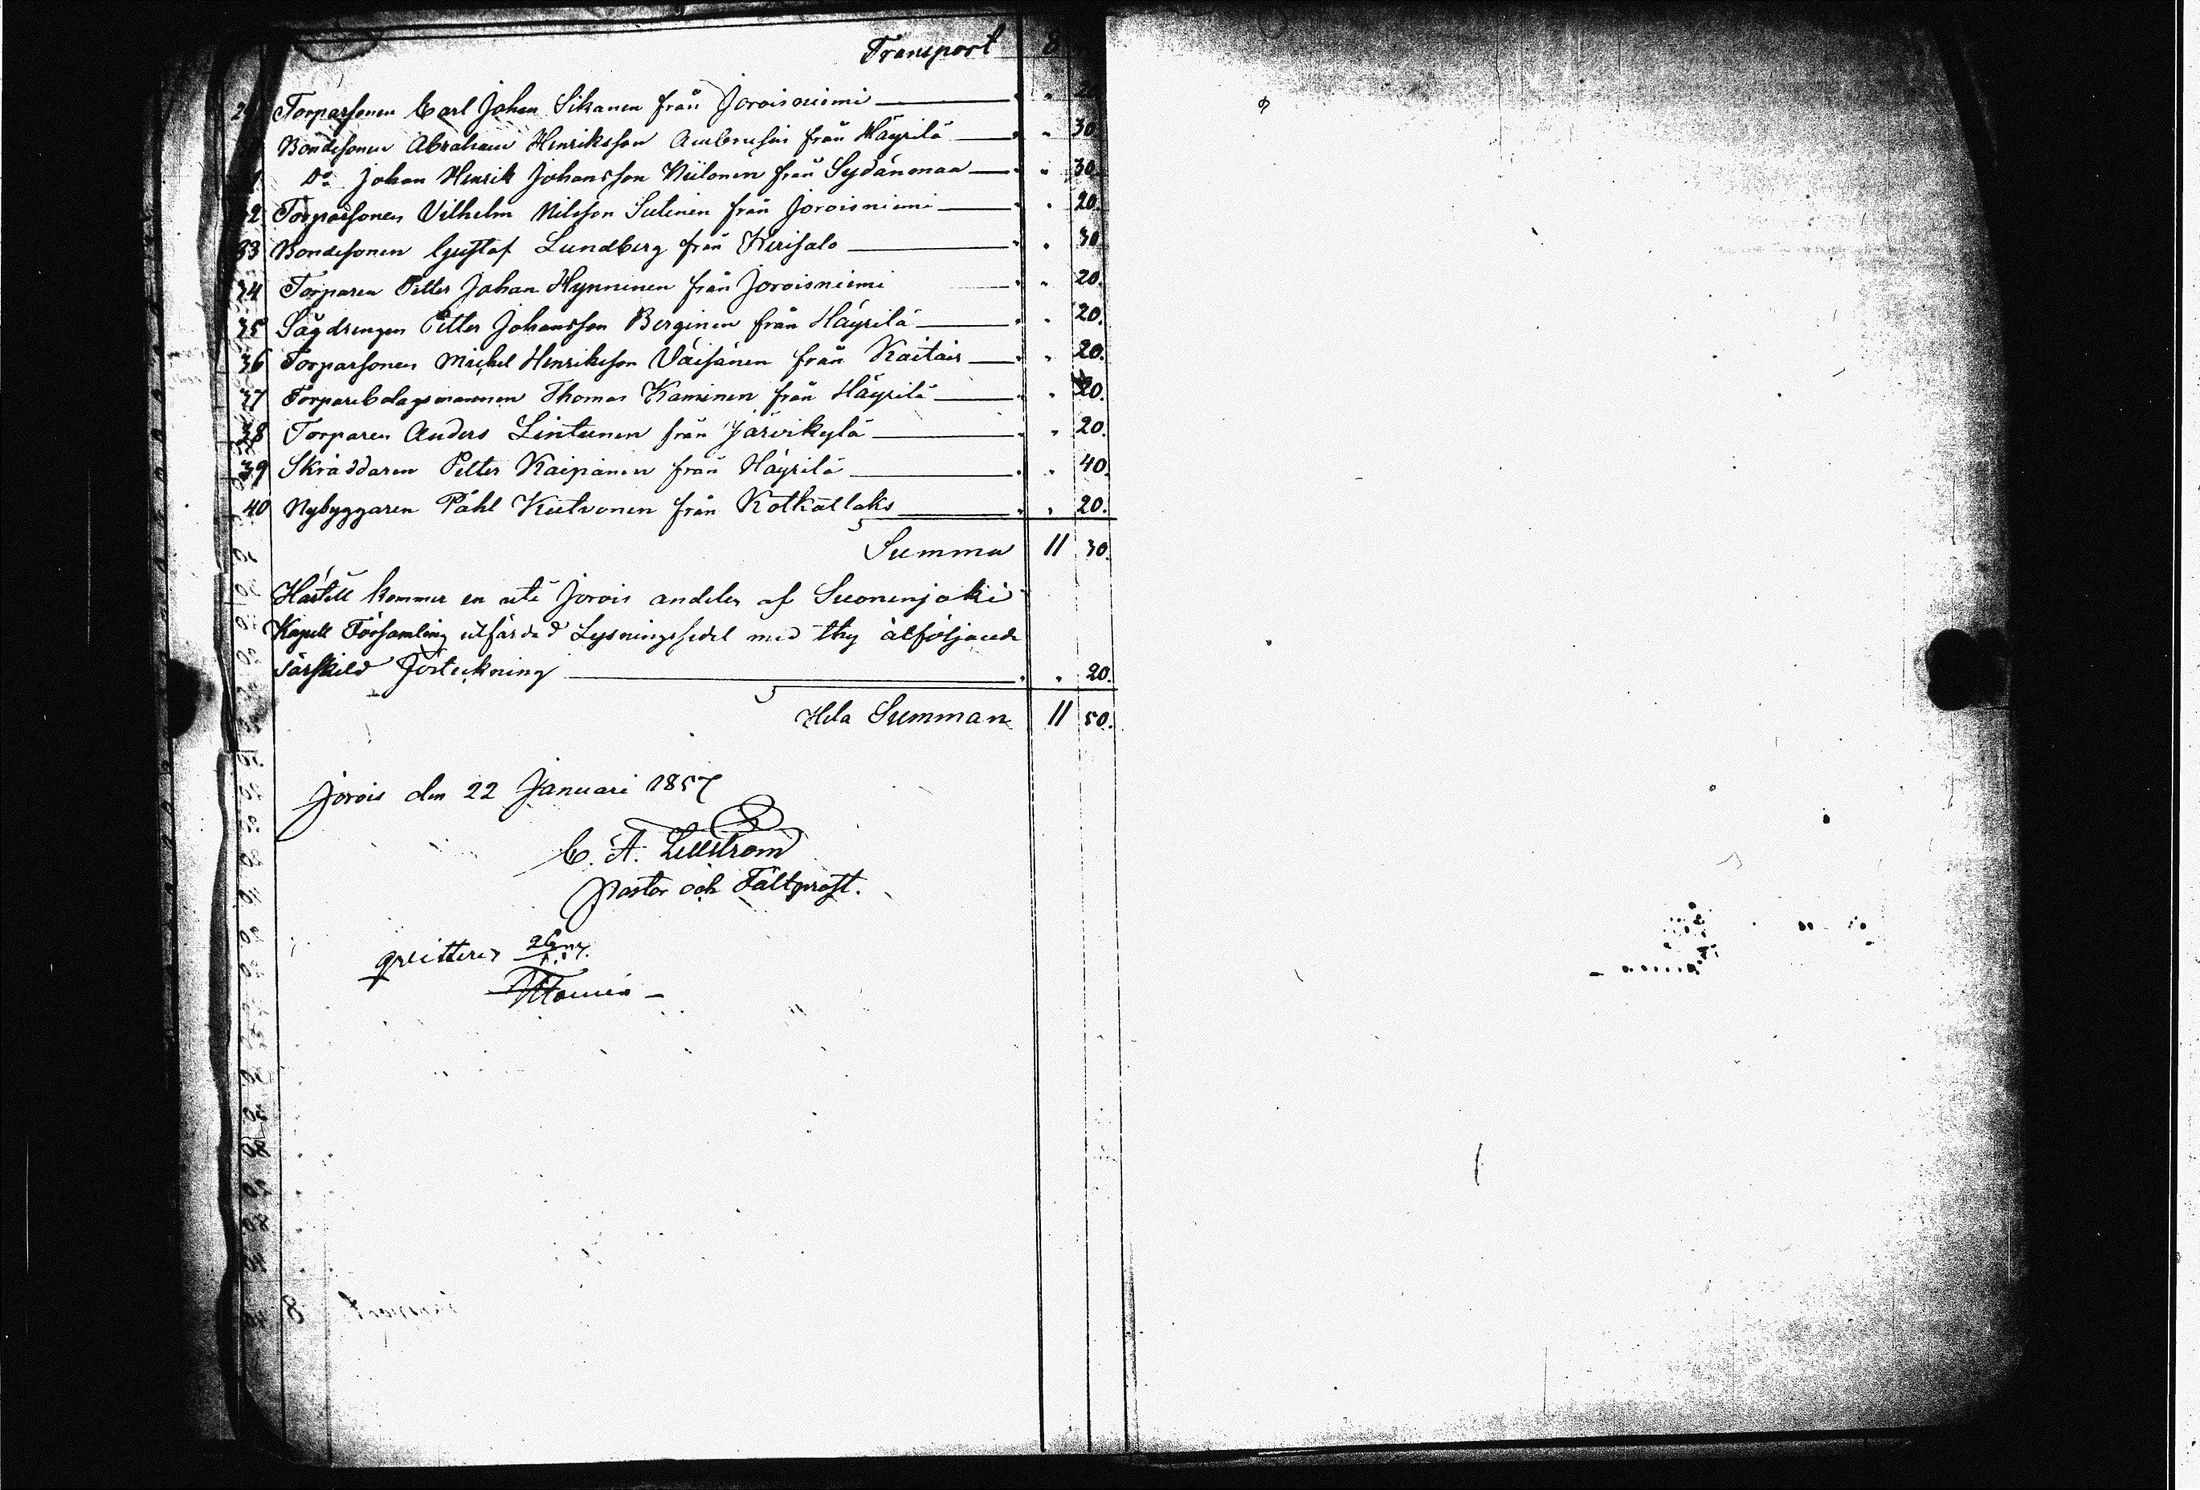 Transport 8
Torparsonen Carl Johan Sikanen från Joroisniemi
Bondesonen Abraham Henriksson från Häyrilä " 30.
Do Johan Henrik Johansson Niilonen från Sydänmaa " 30.
32 Torparsonen Vilhelm Nilsson Sutinen från Joroisniemi " 20.
33 Bondesonen Gustaf Lundberg från Kerisalo " 30
34 Torparen Petter Johan Hynninen från Joroisniemi " 20.
35 Sågdrengen Petter Johansson Berginen från Häyrilä " 20.
36 Torparsonen Michel Henriksson Väisänen från Kaitais " 20.
37 Torparebolagsmannen Thomas Kaminen från Häyrilä " 20.
38 Torparen Anders Lintunen från Järvikylä " 20.
39 Skräddaren Petter Kaipainen från Häyrilä " 40.
40 Nybyggaren Påhl Kutvonen från Kotkatlaks " 20.
Summa 11 30.
Härtill kommer en uti Jorois andelen af Suonenjoki
Kapell Församling utfärdad Lysningssedel med thy åtföljande
särskild Förteckning " 20.
Hela Summan 11 50.
Jorois den 22 Januari 1857
C. A. Lillström
Pastor och Fältprost.
qvitteras